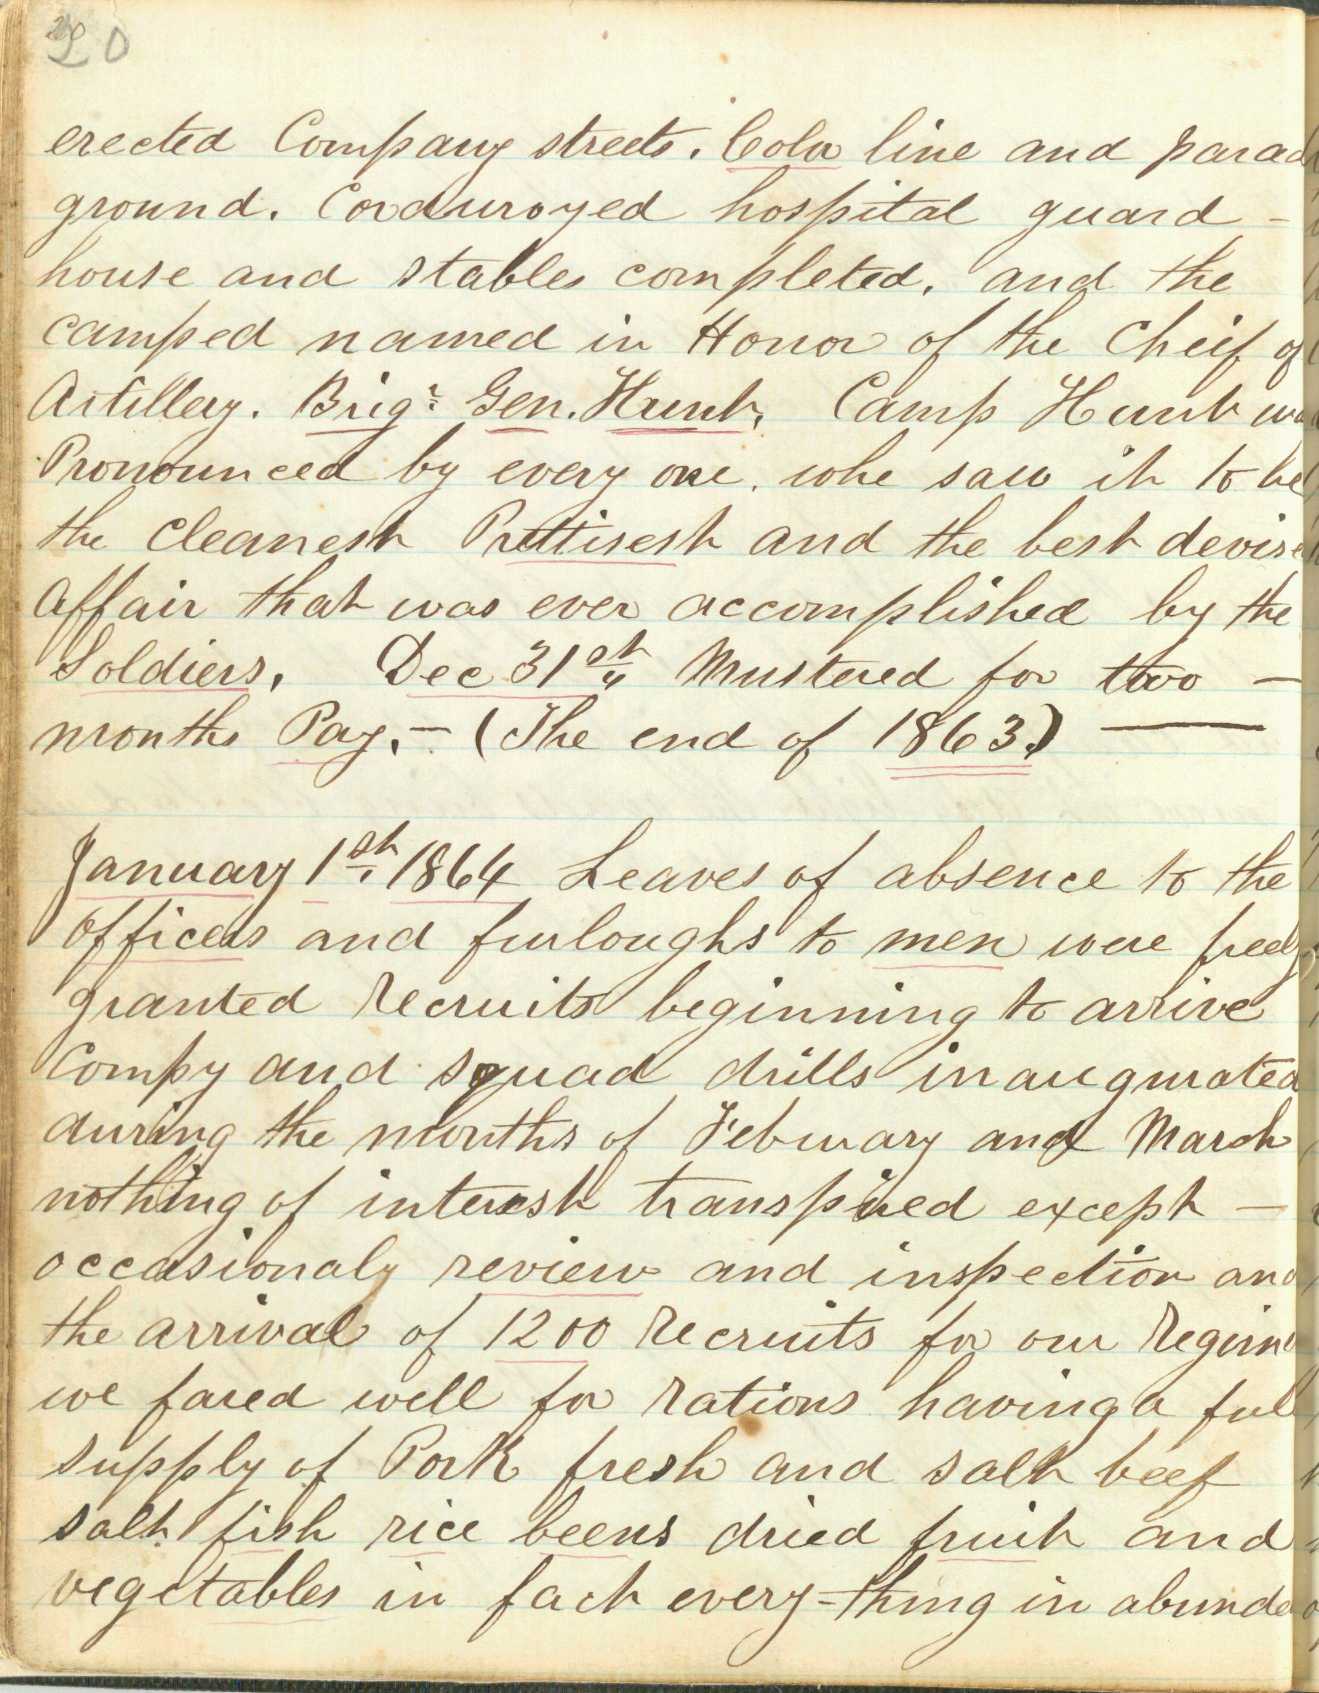 20
erected Company streets. Color line and parad
ground. Corduroyed hospital guard -
house and stables completed. and the
camped named in Honor of the Cheif of
Artillery. Brigr. Gen. Hunt. Camp Hunt wa
Pronounced by every one. who saw it to be
the cleanest Prettisest and the best devise
affair that was ever accomplished by the
Soldiers. Dec 31st Mustered for two -
months Pay. - (The end of 1863.) —
January 1st. 1864 Leaves of absence to the
officers and furloughs to men were freely
granted recruits beginning to arrive
Compy and squad drills inaugurated
during the months of Febuary and March
nothing of interest transpired except -
occasionaly review and inspection and
the arrival of 1200 recruits for our Regim
we fared well for rations having a full
supply of Pork fresh and salt beef
salt fish rice beens dried fruit and
vegetables in fact every-thing in abunda